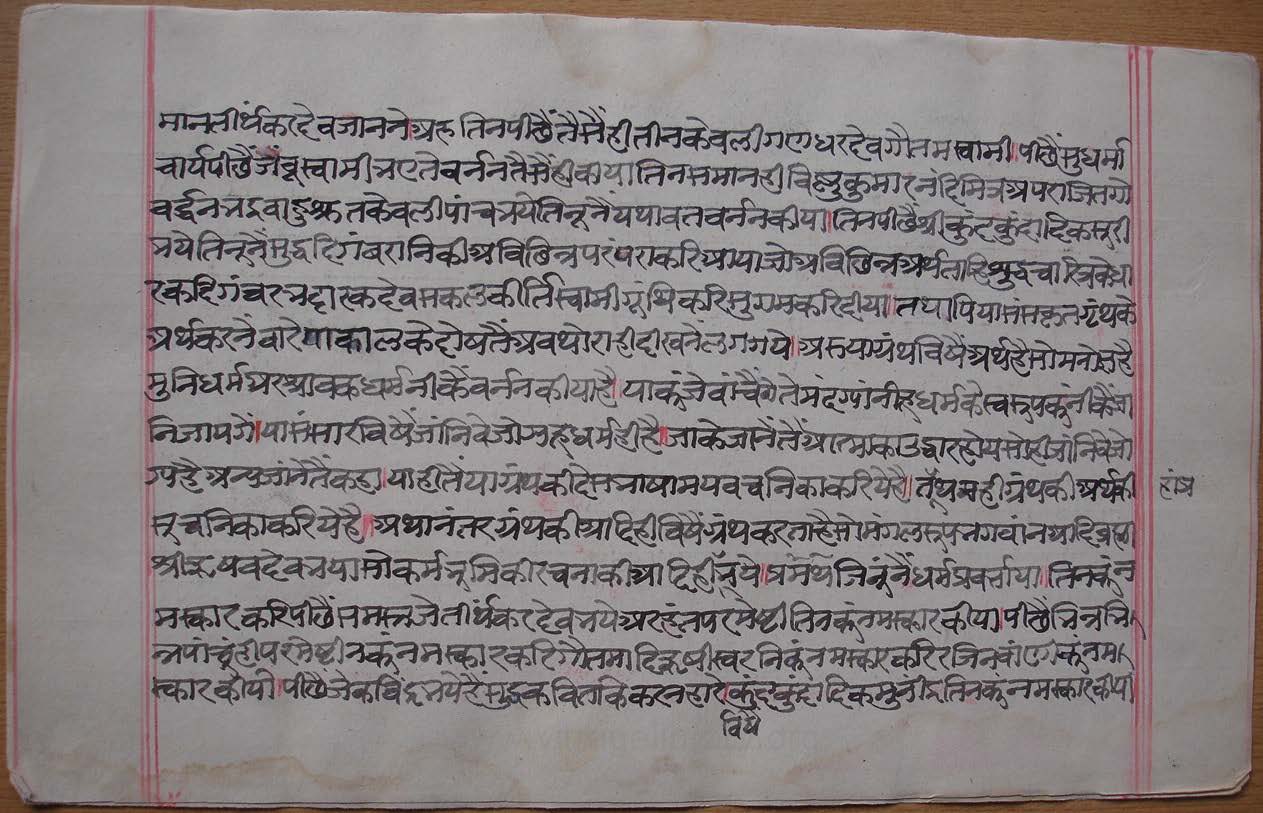 मानतीर्थंकरदेवजाननेअरुतिनपीछैंतैसैंहीतीनकेवलीगणधरदेवगौतमस्वामी।पीछैंसुधर्मा
चार्यपीछैंजंबूस्वामीभएतेवर्ननतैसैंहीकीयातिनसमानहीविष्णुकुमारनंदिमित्रअपराजितगो
वर्द्धनभद्रवाहुश्रुतकेवलीपांचभयेतिनूनैंयथावतवर्ननकीया।तिनपीछैश्रीकुंदकुंदादिकसूरी
भयेतिनूतैंसुद्धदिगंबरानिकीअविछिन्नपरंपराकरिआयाजोअविछिन्नअर्थताहि
रकदिगंवरभट्टारकदेवसकलकीर्तिस्वामीगूंथिकरिसुगमकरिदीया।तथापियासंसकृतग्रंथके
अर्थकरनेंवारेयाकालकेदोषतैंअवथोराहीदीखनेंलगगये।अरुयाग्रंथविषैंअर्थहैसोमनोज्ञहै
मुनिधर्मअरश्रावकधर्मनीकैंवर्ननकीयाहै।याकूंजेवांचैंगेतेमंदग्यांनीहूधर्मकेस्वरूपकूंनीकैंजां
निजायगें।यासंसारविषैंजांनिवेजोग्यएकधर्महीहै।जाकेजानैंतैंआत्माकाउद्धारहोयसोहीजांनिवेजो
ग्यहैअन्यजांनेतैंकहा।याहीतैंयाग्रंथकीदेसभाषामयवचनिकाकरियेहै।तहांप्रथमहीग्रंथकीअर्थकी
सूचनिकाकरियेहै।अथानंतरग्रंथकीआदिहीविषैंग्रंथकरताहैसोमंगलरूपभगवांनआदिब्रह्मा
श्रीऋषवदेवभयासोकर्मभूमिकीरचनाकीआदिहीभये।प्रमथजिनूंनैंधर्मप्रवर्त्ताया।तिनकूंन
मस्कारकरिपीछैंसमस्तजेतीर्थंकरदेवभयेअरहंतपरमेष्टीतिनकूंनमस्कारकीया।पीछैंभिन्नभि
न्नपांचूंहीपरमेष्टीनकूंनमस्कारकरिगौतमादिऋषीस्वरनिकूंनमस्कारकरिरजिनवांणीकूंनम
स्कारकीया।पीछैजेकविंद्रभयेहैंसुद्धकविताकेकरनहारेकुंदकुंदादिकमुनींद्रतिनकूंनमस्कारकीया
विषै